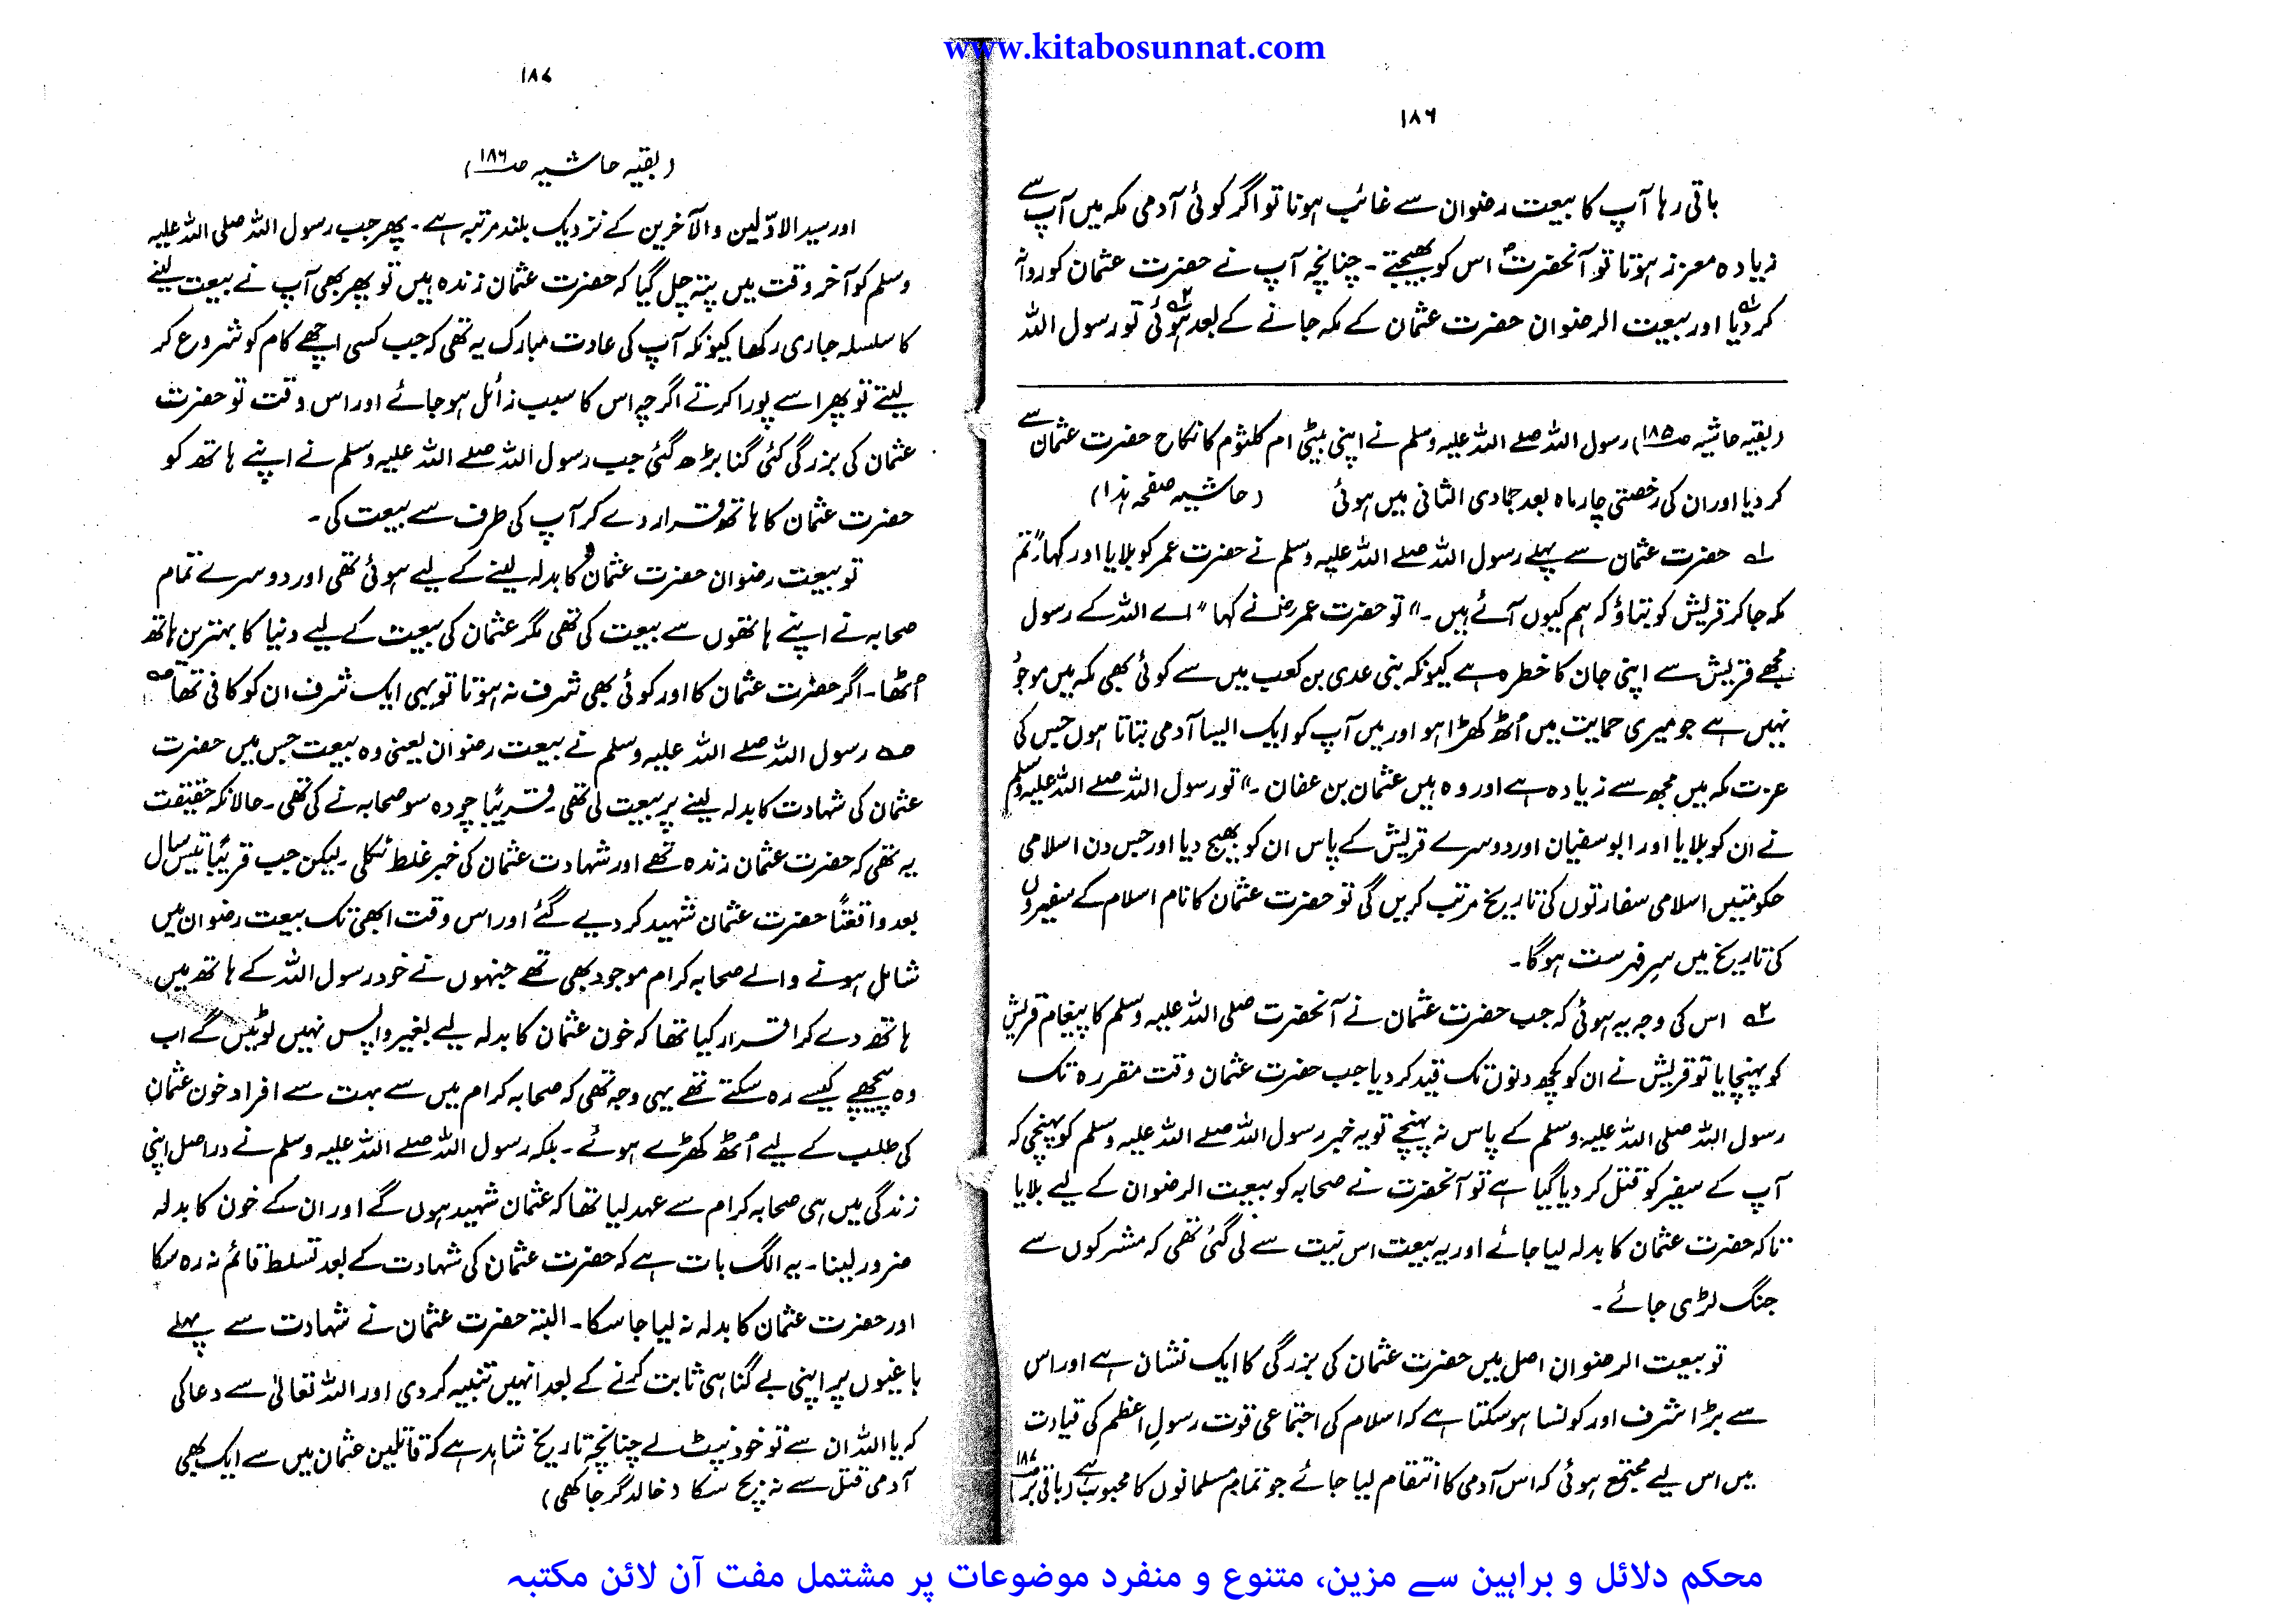 www.kitabosunnat.com
۱۸۶
باقی رہا آپ کا بیعت رضوان سے غائب ہونا تو اگر کوئی آدمی مکہ میں آپ سے
زیادہ معزز ہوتا تو آنحضرتؐ اس کو بھیجتے ۔ چنانچہ آپ نے حضرت عثمان کو روانہ
کر دیا۱؎ اور بیعت الرضوان حضرت عثمان کے مکہ جانے کے بعد ہوئی۲؎ تو رسول اللہ
(بقیہ حاشیہ صـ۱۸۵) رسول اللہ صلے اللہ علیہ وسلم نے اپنی بیٹی ام کلثوم کا نکاح حضرت عثمان سے
کر دیا اور ان کی رخصتی چار ماہ بعد جمادی الثانی میں ہوئی (حاشیہ صفحہ ہذا)
۱؎ حضرت عثمان سے پہلے رسول اللہ صلے اللہ علیہ وسلم نے حضرت عمر کو بلایا اور کہا "تم
مکہ جا کر قریش کو بتاؤ کہ ہم کیوں آئے ہیں ۔" تو حضرت عمرؓ نے کہا "اے اللہ کے رسول
مجھے قریش سے اپنی جان کا خطرہ ہے کیونکہ بنی عدی بن کعب میں سے کوئی بھی مکہ میں موجود
نہیں ہے جو میری حمایت میں اُٹھ کھڑا ہو اور میں آپ کو ایک ایسا آدمی بتاتا ہوں جس کی
عزت مکہ میں مجھ سے زیادہ ہے اور وہ ہیں عثمان بن عفان ۔" تو رسول اللہ صلے اللہ علیہ وسلم
نے ان کو بلایا اور ابو سفیان اور دوسرے قریش کے پاس ان کو بھیج دیا اور جس دن اسلامی
حکومتیں اسلامی سفارتوں کی تاریخ مرتب کریں گی تو حضرت عثمان کا نام اسلام کے سفیروں
کی تاریخ میں سرفہرست ہوگا ۔
۲؎ اس کی وجہ یہ ہوئی کہ جب حضرت عثمان نے آنحضرت صلی اللہ علیہ وسلم کا پیغام قریش
کو پہنچایا تو قریش نے ان کو کچھ دنوں تک قید کر دیا جب حضرت عثمان وقت مقررہ تک
رسول اللہ صلی اللہ علیہ وسلم کے پاس نہ پہنچے تو یہ خبر رسول اللہ صلے اللہ علیہ وسلم کو پہنچی کہ
آپ کے سفیر کو قتل کر دیا گیا ہے تو آنحضرت نے صحابہ کو بیعت الرضوان کے لیے بلایا
تاکہ حضرت عثمان کا بدلہ لیا جائے اور یہ بیعت اس نیت سے لی گئی تھی کہ مشرکوں سے
جنگ لڑی جائے ۔
تو بیعت الرضوان اصل میں حضرت عثمان کی بزرگی کا ایک نشان ہے اور اس
سے بڑا شرف اور کونسا ہو سکتا ہے کہ اسلام کی اجتماعی قوت رسولِ اعظم کی قیادت
میں اس لیے مجتمع ہوئی کہ اس آدمی کا انتقام لیا جائے جو تمام مسلمانوں کا محبوب ہے (باقی بر صـ۱۸۷)
۱۸۷
(بقیہ حاشیہ صـ۱۸۶)
اور سید الاوّلین والآخرین کے نزدیک بلند مرتبہ ہے ۔ پھر جب رسول اللہ صلی اللہ علیہ
وسلم کو آخر وقت میں پتہ چل گیا کہ حضرت عثمان زندہ ہیں تو پھر بھی آپ نے بیعت لینے
کا سلسلہ جاری رکھا کیونکہ آپ کی عادت مبارک یہ تھی کہ جب کسی اچھے کام کو شروع کر
لیتے تو پھر اسے پورا کرتے اگرچہ اس کا سبب زائل ہو جائے اور اس وقت تو حضرت
عثمان کی بزرگی کئی گنا بڑھ گئی جب رسول اللہ صلے اللہ علیہ وسلم نے اپنے ہاتھ کو
حضرت عثمان کا ہاتھ قرار دے کر آپ کی طرف سے بیعت کی ۔
تو بیعت رضوان حضرت عثمان کا بدلہ لینے کے لیے ہوئی تھی اور دوسرے تمام
صحابہ نے اپنے ہاتھوں سے بیعت کی تھی مگر عثمان کی بیعت کے لیے دنیا کا بہترین ہاتھ
اُٹھا ۔ اگر حضرت عثمان کا اور کوئی بھی شرف نہ ہوتا تو یہی ایک شرف ان کو کافی تھا
رسول اللہ صلے اللہ علیہ وسلم نے بیعت رضوان یعنی وہ بیعت جس میں حضرت
عثمان کی شہادت کا بدلہ لینے پر بیعت لی تھی ۔ قریباً چودہ سو صحابہ نے کی تھی ۔ حالانکہ حقیقت
یہ تھی کہ حضرت عثمان زندہ تھے اور شہادت عثمان کی خبر غلط نکلی ۔ لیکن جب قریباً تیس سال
بعد واقعتاً حضرت عثمان شہید کر دیے گئے اور اس وقت ابھی تک بیعت رضوان میں
شامل ہونے والے صحابہ کرام موجود بھی تھے جنہوں نے خود رسول اللہ کے ہاتھ میں
ہاتھ دے کر اقرار کیا تھا کہ خون عثمان کا بدلہ لیے بغیر واپس نہیں لوٹیں گے اب
وہ پیچھے کیسے رہ سکتے تھے یہی وجہ تھی کہ صحابہ کرام میں سے بہت سے افراد خون عثمان
کی طلب کے لیے اُٹھ کھڑے ہوئے ۔ بلکہ رسول اللہ صلے اللہ علیہ وسلم نے دراصل اپنی
زندگی میں ہی صحابہ کرام سے عہد لیا تھا کہ عثمان شہید ہوں گے اور ان کے خون کا بدلہ
ضرور لینا ۔ یہ الگ بات ہے کہ حضرت عثمان کی شہادت کے بعد تسلط قائم نہ رہ سکا
اور حضرت عثمان کا بدلہ نہ لیا جا سکا ۔ البتہ حضرت عثمان نے شہادت سے پہلے
باغیوں پر اپنی بے گناہی ثابت کرنے کے بعد انہیں تنبیہ کر دی اور اللہ تعالیٰ سے دعا کی
کہ یا اللہ ان سے تو خود نپٹ لے چنانچہ تاریخ شاہد ہے کہ قاتلین عثمان میں سے ایک بھی
آدمی قتل سے نہ بچ سکا (خالد گرجاکھی)
محکم دلائل و براہین سے مزین، متنوع و منفرد موضوعات پر مشتمل مفت آن لائن مکتبہ